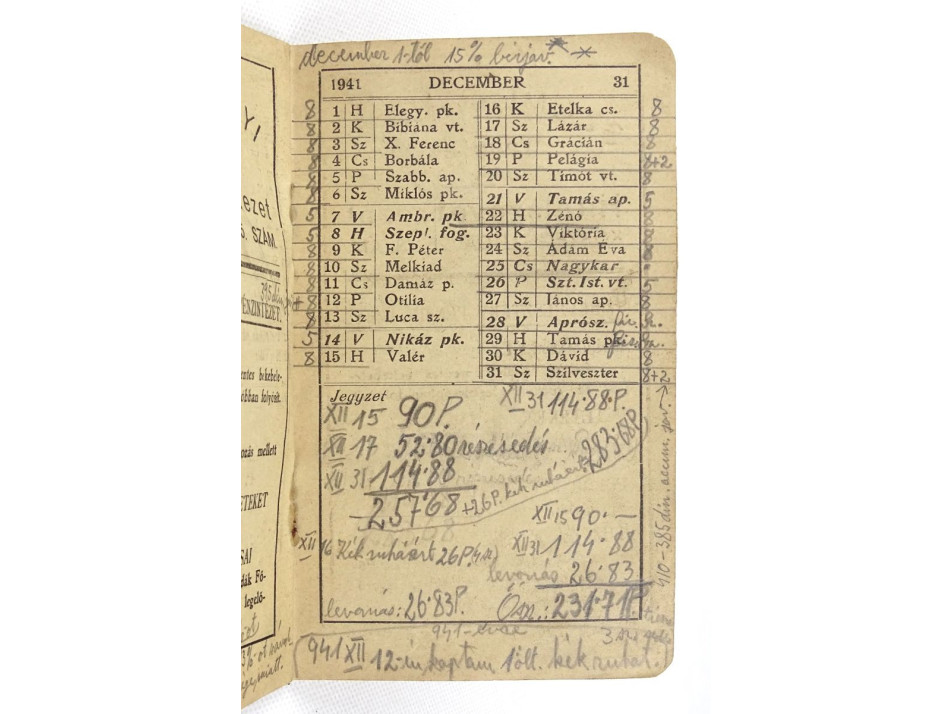 december 1-től 15% bérjav.
1941 DECEMBER 31
8 1 H Elegy. pk.
8 2 K Bibiána vt.
8 3 Sz X. Ferenc
8 4 Cs Borbála
8 5 P Szabb. ap.
8 6 Sz Miklós pk.
5 7 V Ambr. pk
5 8 H Szepl. fog.
8 9 K F. Péter
8 10 Sz Melkiad
8 11 Cs Damáz p.
8 12 P Otilia
8 13 Sz Luca sz.
5 14 V Nikáz pk.
8 15 H Valér
16 K Etelka cs. 8
17 Sz Lázár 8
18 Cs Grácián 8
19 P Pelágia 8+2
20 Sz Timót vt. 8
21 V Tamás ap. 5
22 H Zénó 8
23 K Viktória 8
24 Sz Ádám Éva 8
25 Cs Nagykar
26 P Szt. Ist. vt. 5
27 Sz János ap. 8
28 V Aprósz.
29 H Tamás pk.
30 K Dávid 8
31 Sz Szilveszter 8+2
Jegyzet
XII 15 90P.
XII 31 114·88·P.
XII 17 52·80 részesedés
XII 31 114·88
257·68 +26P. kék ruháért 283·68P
XII 15 90.—
XII 16 Kék ruháért 26P.
XII 31 114·88
levonás 26·83
levonás: 26·83P.
Össz.: 231·71P.
941-évae
941 XII 12-én kaptam 1 ölt. kék ruhát.
ezet
SZÁM.
PÉNZINTÉZET.
entes békebele-
obban folyósít.
ozás mellett
ETEKET
SAI
dák Fő-
legelő-